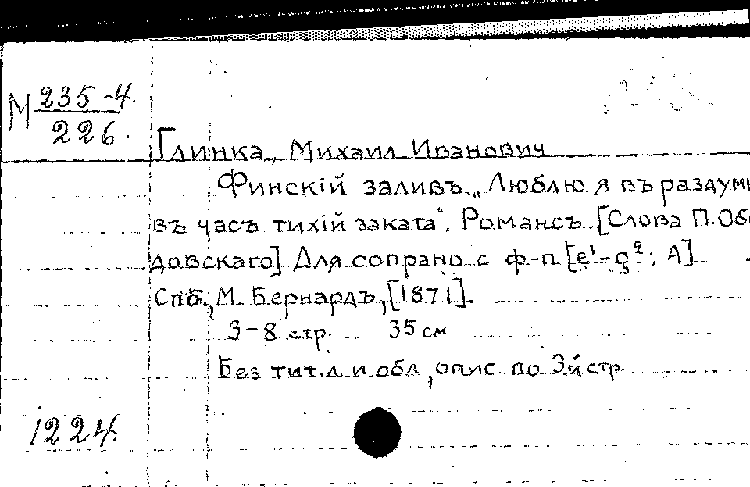 М 235-4
226.
Глинка, Михаил Иванович
Финскiй заливъ. „Люблю я въ раздумь
въ часъ тихiй заката“. Романсъ. [Слова П. Обо
довскаго] Для сопрано с ф-п [e¹-g²; A]
Спб., М. Бернардъ, [1871].
3-8 стр. 35 см
Без тит. л. и обл., опис. по 3й стр
1224.